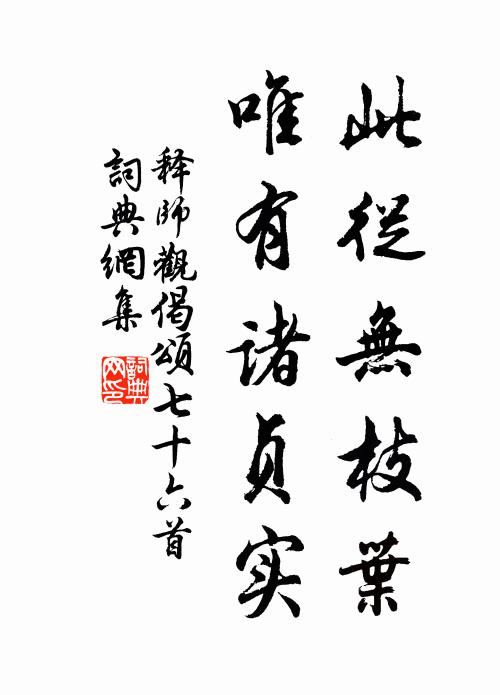 此從無枝葉
唯有諸贞实
释師觀偈頌七十六首
詞典網集
詞典
网印